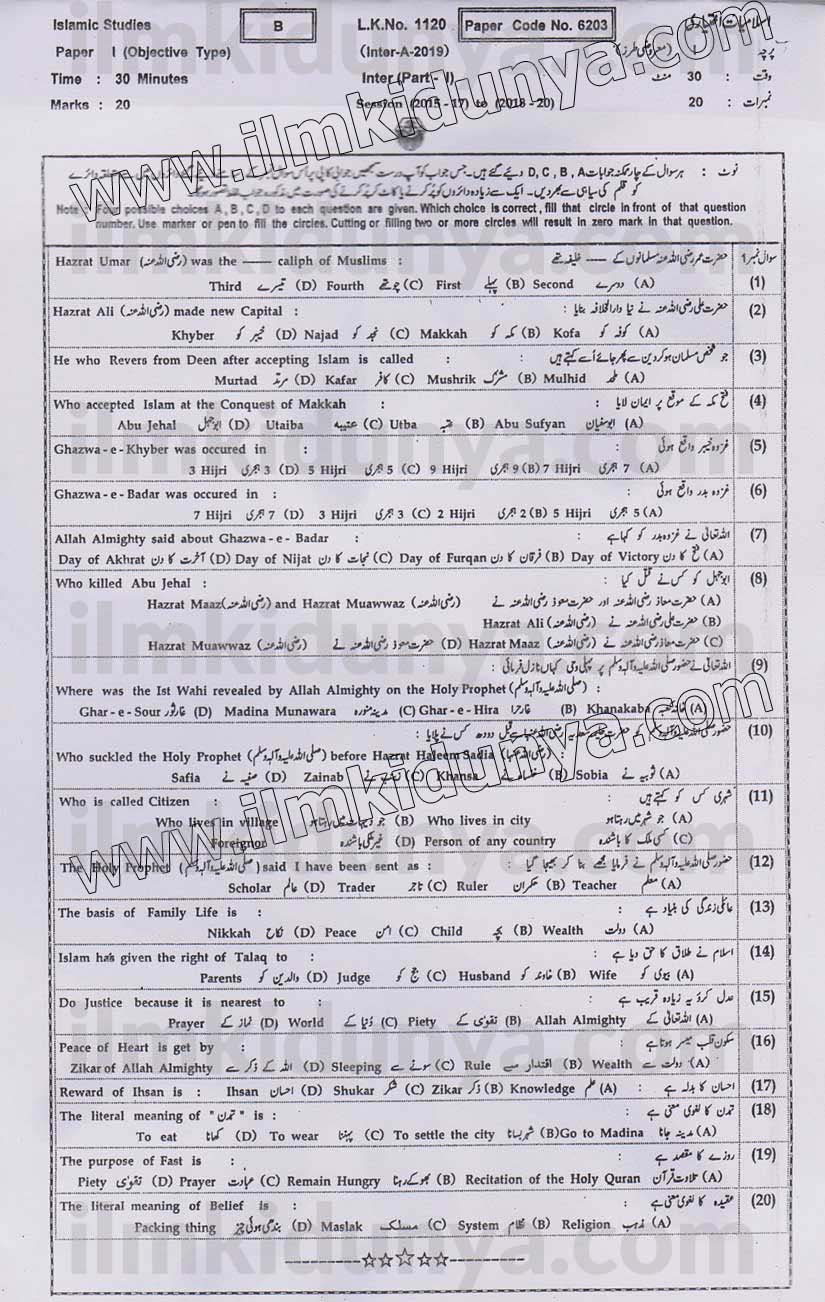 Islamic Studies B L.K.No. 1120 Paper Code No. 6203 اسلامیات اختیاری
Paper I (Objective Type) (Inter-A-2019) پرچہ I (معروضی طرز)
Time : 30 Minutes Inter (Part - I) وقت : 30 منٹ
Marks : 20 Session (2015 - 17) to (2018 - 20) نمبرات : 20
www.ilmkidunya.com
نوٹ : ہر سوال کے چار ممکنہ جوابات D, C, B, A دیئے گئے ہیں۔ جس جواب کو آپ درست سمجھیں
Note : Four possible choices A, B, C, D to each question are given. Which choice is correct, fill that circle in front of that question
number. Use marker or pen to fill the circles. Cutting or filling two or more circles will result in zero mark in that question.
Hazrat Umar (رضی اللہ عنہ) was the —— caliph of Muslims : حضرت عمر رضی اللہ عنہ مسلمانوں کے —— خلیفہ تھے سوال نمبر 1
Third تیسرے (D) Fourth چوتھے (C) First پہلے (B) Second دوسرے (A) (1)
Hazrat Ali (رضی اللہ عنہ) made new Capital : حضرت علی رضی اللہ عنہ نے نیا دارالخلافہ بنایا (2)
Khyber خیبر کو (D) Najad نجد کو (C) Makkah مکہ کو (B) Kofa کوفہ کو (A)
He who Revers from Deen after accepting Islam is called : جو شخص مسلمان ہو کر دین سے پھر جائے اُسے کہتے ہیں (3)
Murtad مرتد (D) Kafar کافر (C) Mushrik مشرک (B) Mulhid ملحد (A)
Who accepted Islam at the Conquest of Makkah : فتح مکہ کے موقع پر ایمان لایا (4)
Abu Jehal ابوجہل (D) Utaiba عتیبہ (C) Utba عتبہ (B) Abu Sufyan ابوسفیان (A)
Ghazwa - e - Khyber was occured in : غزوہ خیبر واقع ہوئی (5)
3 Hijri 3 ہجری (D) 5 Hijri 5 ہجری (C) 9 Hijri 9 ہجری (B) 7 Hijri 7 ہجری (A)
Ghazwa - e - Badar was occured in : غزوہ بدر واقع ہوئی (6)
7 Hijri 7 ہجری (D) 3 Hijri 3 ہجری (C) 2 Hijri 2 ہجری (B) 5 Hijri 5 ہجری (A)
Allah Almighty said about Ghazwa - e - Badar : اللہ تعالیٰ نے غزوہ بدر کو کہا ہے (7)
Day of Akhrat آخرت کا دن (D) Day of Nijat نجات کا دن (C) Day of Furqan فرقان کا دن (B) Day of Victory فتح کا دن (A)
Who killed Abu Jehal : ابوجہل کو کس نے قتل کیا (8)
Hazrat Maaz (رضی اللہ عنہ) and Hazrat Muawwaz (رضی اللہ عنہ) حضرت معاذ رضی اللہ عنہ اور حضرت معوذ رضی اللہ عنہ نے (A)
Hazrat Ali (رضی اللہ عنہ) حضرت علی رضی اللہ عنہ نے (B)
Hazrat Muawwaz (رضی اللہ عنہ) حضرت معوذ رضی اللہ عنہ نے (D) Hazrat Maaz (رضی اللہ عنہ) حضرت معاذ رضی اللہ عنہ نے (C)
اللہ تعالیٰ نے حضور صلی اللہ علیہ وآلہ وسلم پر پہلی وحی کہاں نازل فرمائی (9)
Where was the Ist Wahi revealed by Allah Almighty on the Holy Prophet (صلی اللہ علیہ وآلہ وسلم) :
Ghar - e - Sour غار ثور (D) Madina Munawara مدینہ منورہ (C) Ghar - e - Hira غار حرا (B) Khanakaba خانہ کعبہ (A)
حضور صلی اللہ علیہ وآلہ وسلم کو حضرت حلیمہ سعدیہ رضی اللہ عنہا سے قبل دودھ کس نے پلایا : (10)
Who suckled the Holy Prophet (صلی اللہ علیہ وآلہ وسلم) before Hazrat Haleem Sadia (رضی اللہ عنہا) :
Safia صفیہ نے (D) Zainab زینب نے (C) Khansa خنساء نے (B) Sobia ثوبیہ نے (A)
Who is called Citizen : شہری کس کو کہتے ہیں (11)
Who lives in village جو دیہات میں رہتا ہو (B) Who lives in city جو شہر میں رہتا ہو (A)
Foreignor غیر ملکی باشندہ (D) Person of any country کسی ملک کا باشندہ (C)
The Holy Prophet (صلی اللہ علیہ وآلہ وسلم) said I have been sent as : حضور صلی اللہ علیہ وآلہ وسلم نے فرمایا مجھے بنا کر بھیجا گیا : (12)
Scholar عالم (D) Trader تاجر (C) Ruler حکمران (B) Teacher معلم (A)
The basis of Family Life is : عائلی زندگی کی بنیاد ہے (13)
Nikkah نکاح (D) Peace امن (C) Child بچہ (B) Wealth دولت (A)
Islam has given the right of Talaq to : اسلام نے طلاق کا حق دیا ہے : (14)
Parents والدین کو (D) Judge جج کو (C) Husband خاوند کو (B) Wife بیوی کو (A)
Do Justice because it is nearest to : عدل کرو یہ زیادہ قریب ہے (15)
Prayer نماز کے (D) World دنیا کے (C) Piety تقویٰ کے (B) Allah Almighty اللہ تعالیٰ کے (A)
Peace of Heart is get by : سکون قلب میسر ہوتا ہے (16)
Zikar of Allah Almighty اللہ کے ذکر سے (D) Sleeping سونے سے (C) Rule اقتدار سے (B) Wealth دولت سے (A)
Reward of Ihsan is : Ihsan احسان (D) Shukar شکر (C) Zikar ذکر (B) Knowledge علم (A) احسان کا بدلہ ہے : (17)
The literal meaning of "تمدن" is : تمدن کا لغوی معنی ہے (18)
To eat کھانا (D) To wear پہننا (C) To settle the city شہر بسانا (B) Go to Madina مدینہ جانا (A)
The purpose of Fast is : روزے کا مقصد ہے (19)
Piety تقویٰ (D) Prayer عبادت (C) Remain Hungry بھوکے رہنا (B) Recitation of the Holy Quran تلاوت قرآن (A)
The literal meaning of Belief is : عقیدہ کا لغوی معنی ہے (20)
Packing thing بندھی ہوئی چیز (D) Maslak مسلک (C) System نظام (B) Religion مذہب (A)
www.ilmkidunya.com